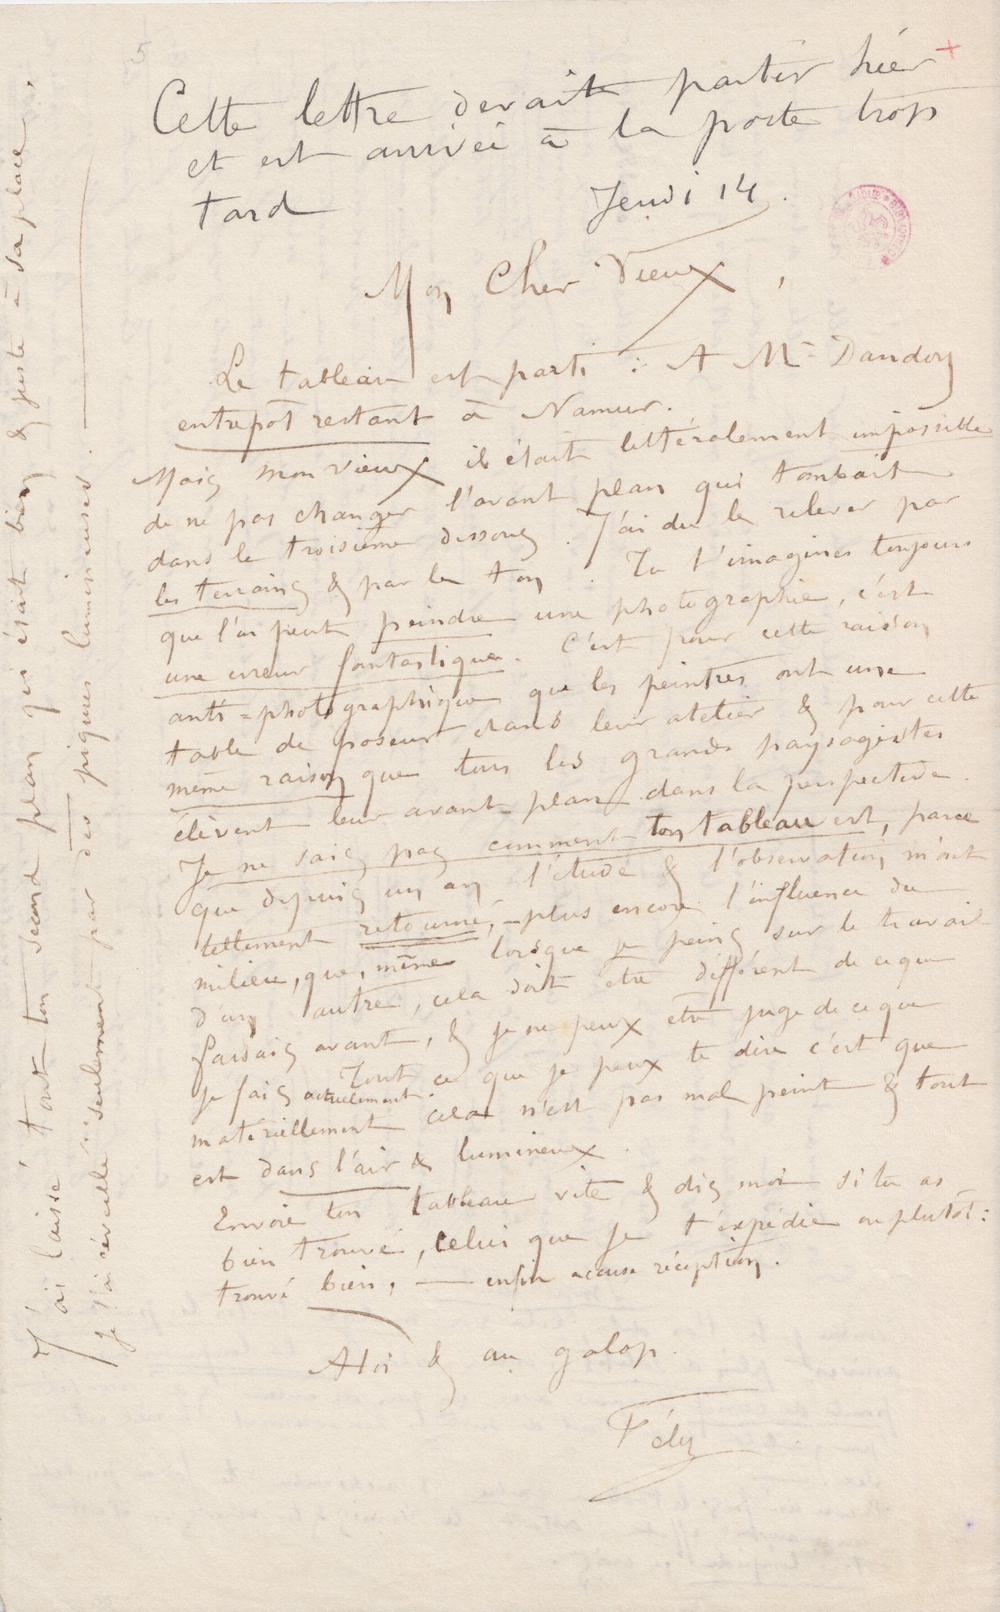 5
Cette lettre devait partir hier
et est arrivée à la poste trop
tard Jeudi 14.
Mon Cher Vieux,
Le tableau est parti : A Mr Dandoy
entrepôt restant à Namur.
Mais mon vieux il était littéralement impossible
de ne pas changer l'avant plan qui tombait
dans le troisième dessous. J'ai du le relever par
les terrains & par le ton. Tu t'imagines toujours
que l'on peut peindre une photographie, c'est
une erreur fantastique. C'est pour cette raison
anti-photographique que les peintres ont une
table de poseur dans leur atelier & pour cette
même raison que tous les grands paysagistes
élèvent leur avant plan dans la perspective.
Je ne sais pas comment ton tableau est, parce
que depuis un an l'étude & l'observation m'ont
tellement retourné, – plus encore l'influence du
milieu, que, même lorsque je peins sur le travail
d'un autre, cela doit être différent de ce que
faisais avant, & je ne peux être juge de ce que
je fais actuellement. Tout ce que je peux te dire c'est que
matériellement cela n'est pas mal peint & tout
est dans l'air & lumineux.
Envoie ton tableau vite & dis moi si tu as
bien trouvé, celui que je t'expédie ou plutôt :
trouvé bien, — enfin accuse réception.
A toi & au galop.
Fély
J'ai laissé tout ton second plan qui était bien & juste à sa place.
je l'ai réveillé seulement par des piqures lumineuses.